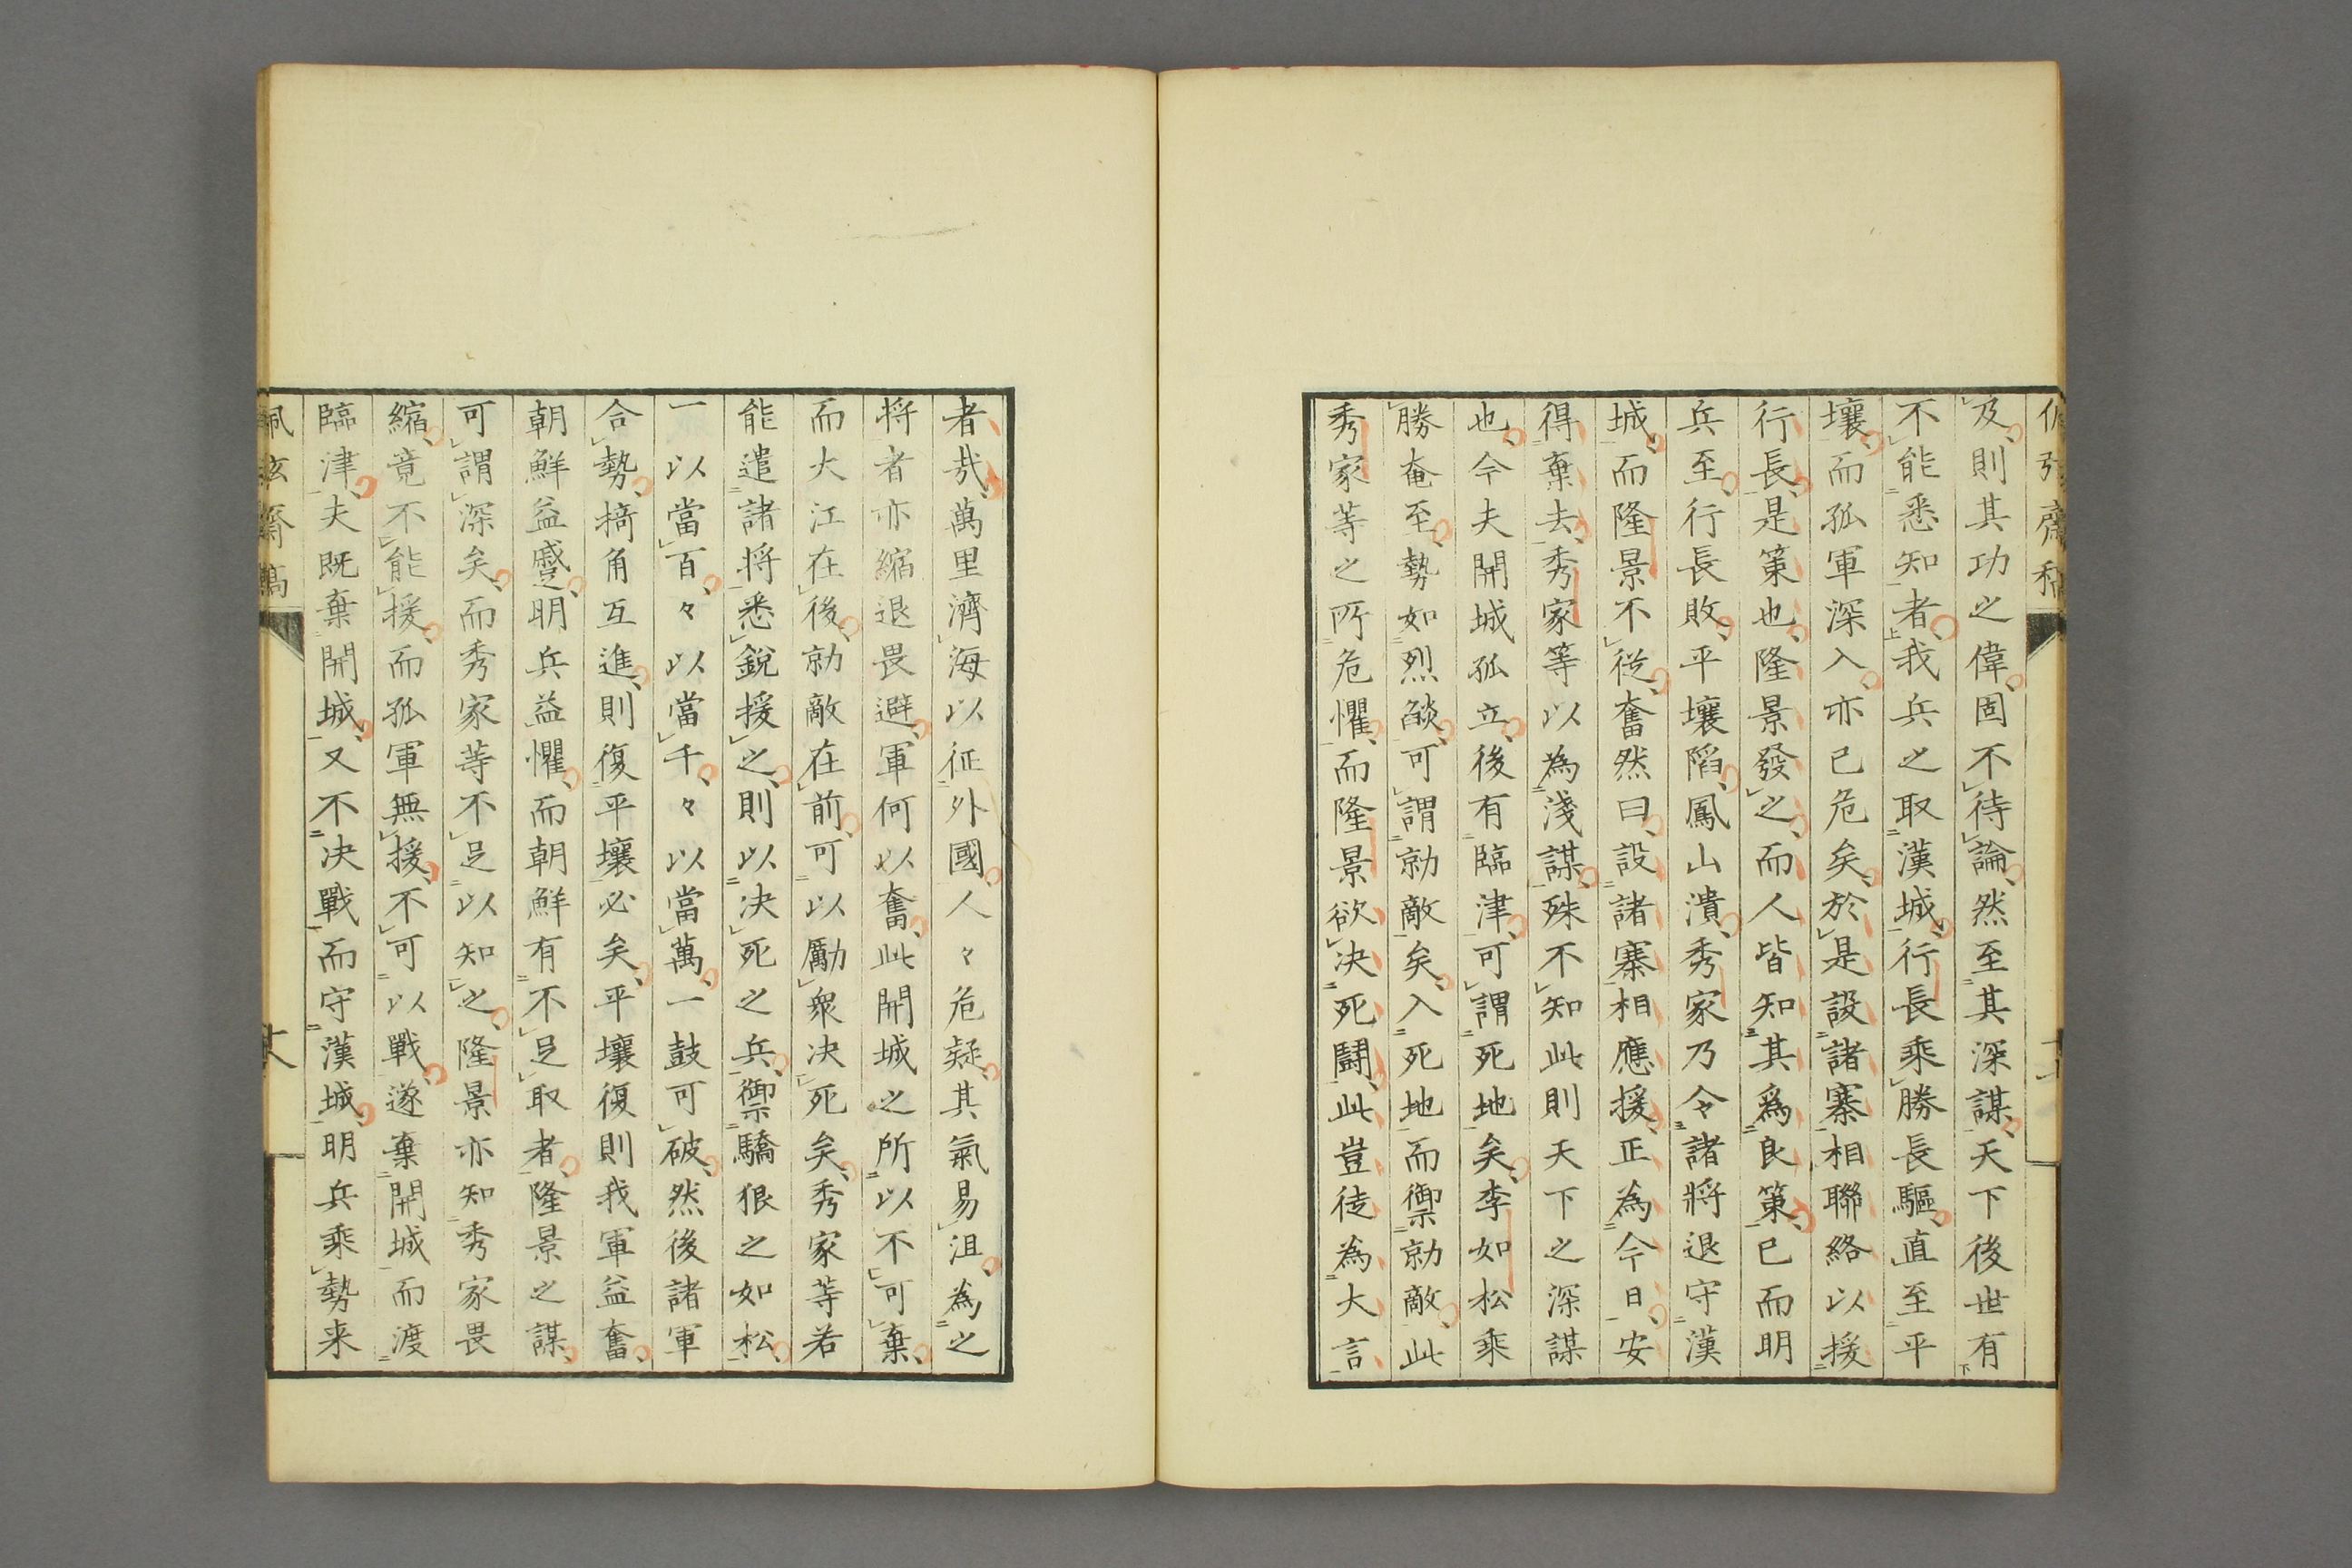 及則其功之偉固不待論然至其深謀天下後世有
不能悉知者我兵之取漢城行長乘勝長驅直至平
壤而孤軍深入亦已危矣於是設諸寨相聯絡以援
行長是策也隆景發之而人皆知其爲良策已而明
兵至行長敗平壤陷鳳山潰秀家乃令諸將退守漢
城而隆景不從奮然曰設諸寨相應援正為今日安
得棄去秀家等以為淺謀殊不知此則天下之深謀
也今夫開城孤立後有臨津可謂死地矣李如松乘
勝奄至勢如烈燄可謂勍敵矣入死地而禦勍敵此
秀家等之所危懼而隆景欲决死鬪此豈徒為大言
者㢤萬里濟海以征外國人々危疑其氣易沮為之
将者亦縮退畏避軍何以奮此開城之所以不可棄
而大江在後勍敵在前可以勵衆决死矣秀家等若
能遣諸将悉銳援之則以决死之兵禦驕狠之如松
一以當百々以當千々以當萬一鼓可破然後諸軍
合勢掎角互進則復平壤必矣平壤復則我軍益奮
朝鮮益蹙明兵益懼而朝鮮有不足取者隆景之謀
可謂深矣而秀家等不足以知之隆景亦知秀家畏
縮竟不能援而孤軍無援不可以戰遂棄開城而渡
臨津夫既棄開城又不决戰而守漢城明兵乘勢来
佩弦齋稿